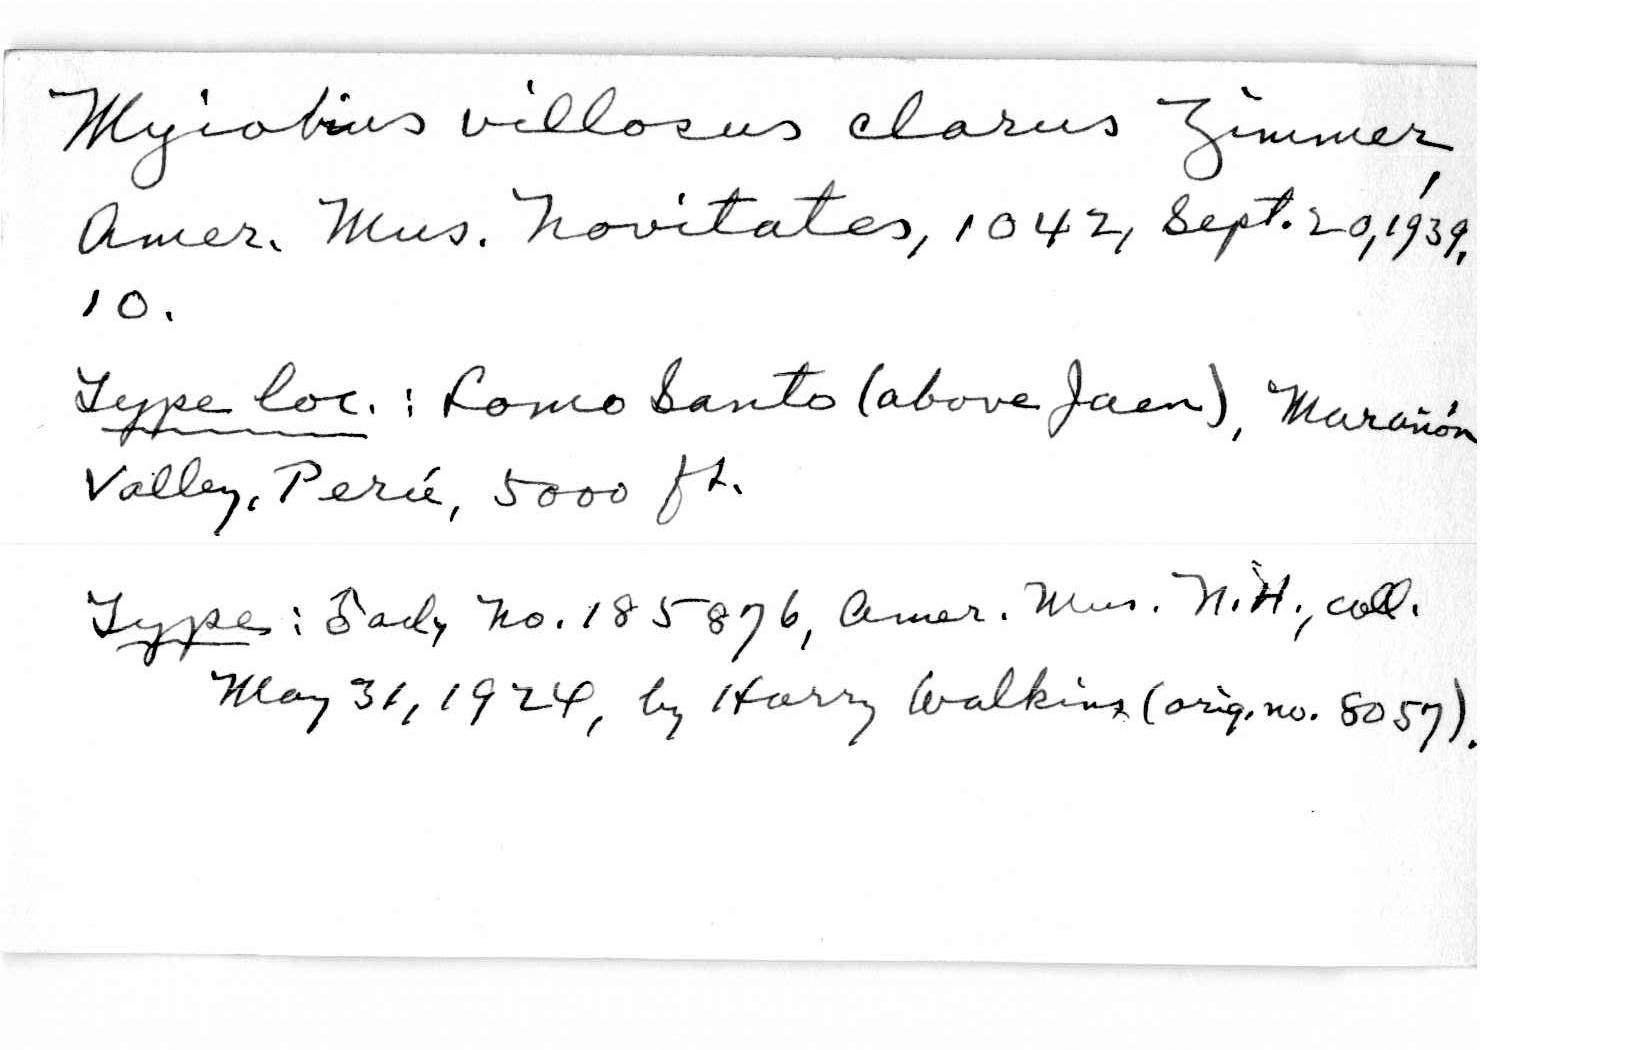 Myiobius villosus clarus Zimmer,
Amer. Mus. Novitates, 1042, Sept. 20, 1939,
10.
Type loc. : Lomo Santo (above Jaen), Marañón
Valley, Perú, 5000 ft.
Type : ♂ ad., No. 185876, Amer. Mus. N.H., coll.
May 31, 1924, by Harry Watkins (orig. no. 8057).